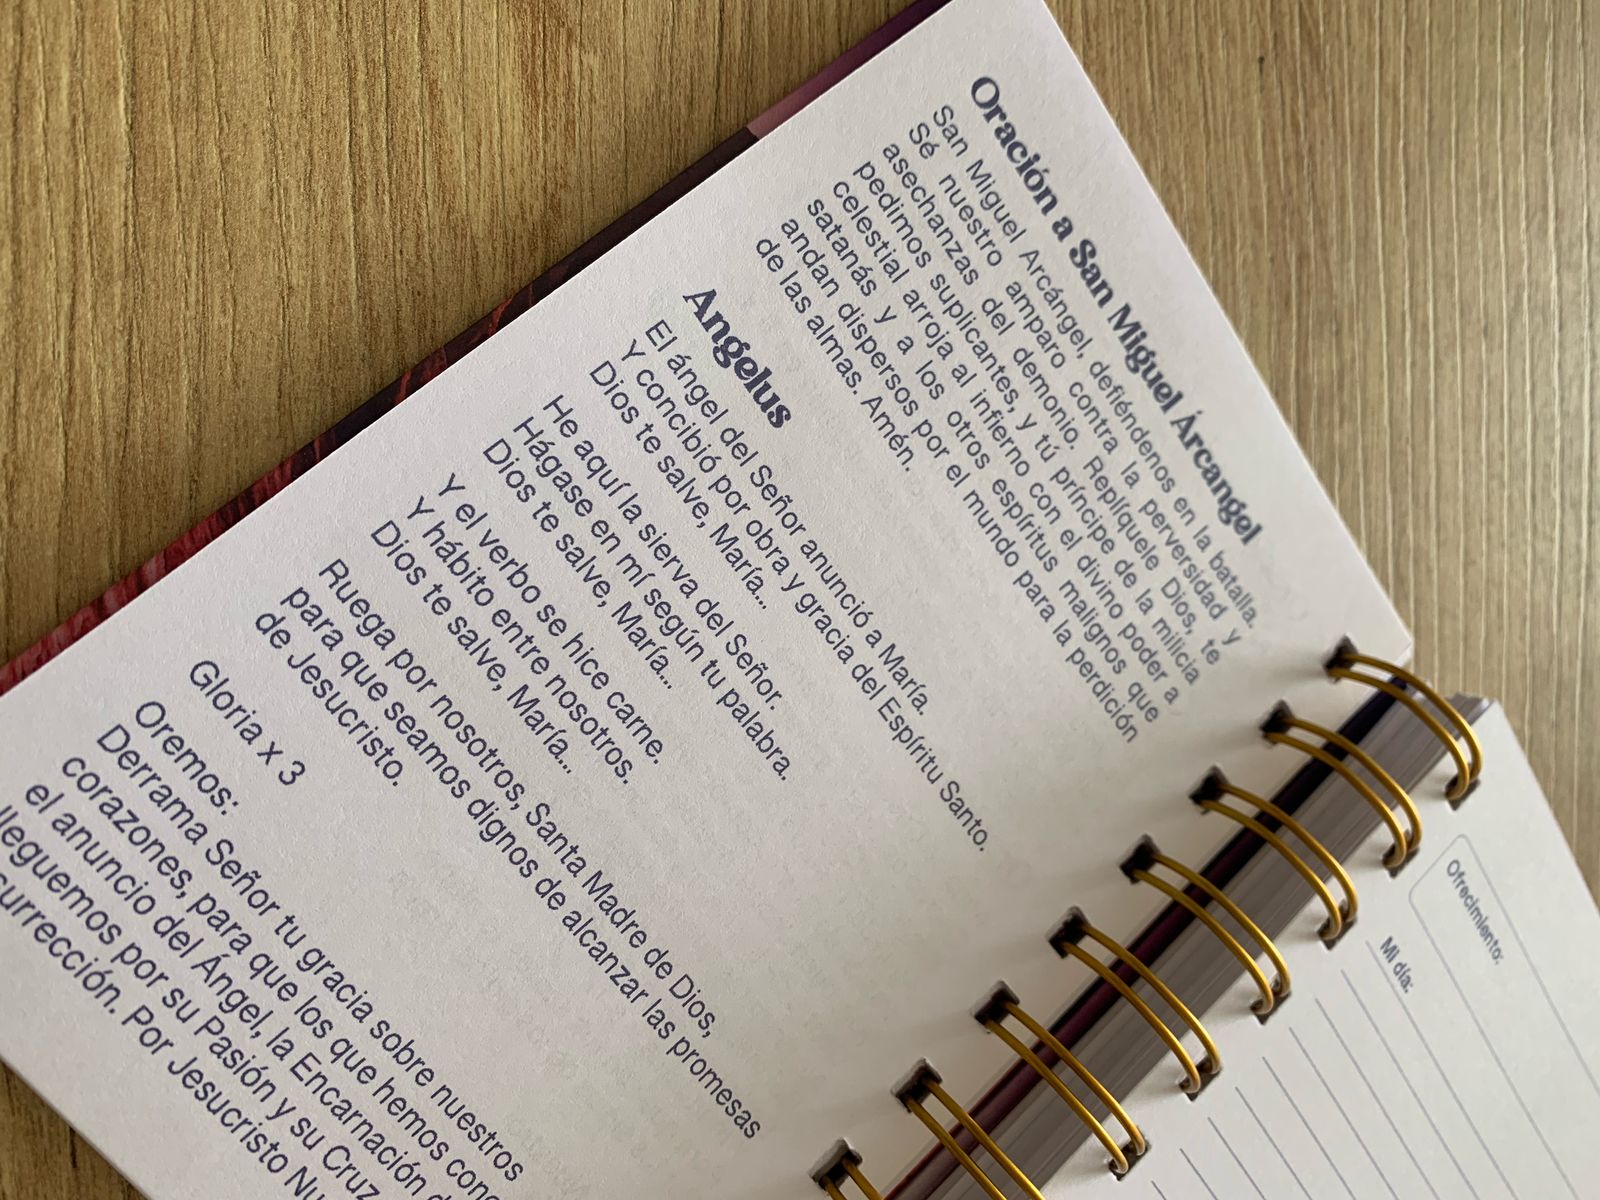 Oración a San Miguel Árcangel
San Miguel Arcángel, defiéndenos en la batalla.
Sé nuestro amparo contra la perversidad y
asechanzas del demonio. Replíquele Dios, te
pedimos suplicantes, y tú príncipe de la milicia
celestial arroja al infierno con el divino poder a
satanás y a los otros espíritus malignos que
andan dispersos por el mundo para la perdición
de las almas. Amén.
Angelus
El ángel del Señor anunció a María.
Y concibió por obra y gracia del Espíritu Santo.
Dios te salve, María...
He aquí la sierva del Señor.
Hágase en mí según tu palabra.
Dios te salve, María...
Y el verbo se hice carne.
Y hábito entre nosotros.
Dios te salve, María...
Ruega por nosotros, Santa Madre de Dios,
para que seamos dignos de alcanzar las promesas
de Jesucristo.
Gloria x 3
Oremos:
Derrama Señor tu gracia sobre nuestros
corazones, para que los que hemos
el anuncio del Ángel, la Encarnación
lleguemos por su Pasión y su Cruz
surrección. Por Jesucristo
Ofrecimiento:
Mi día: